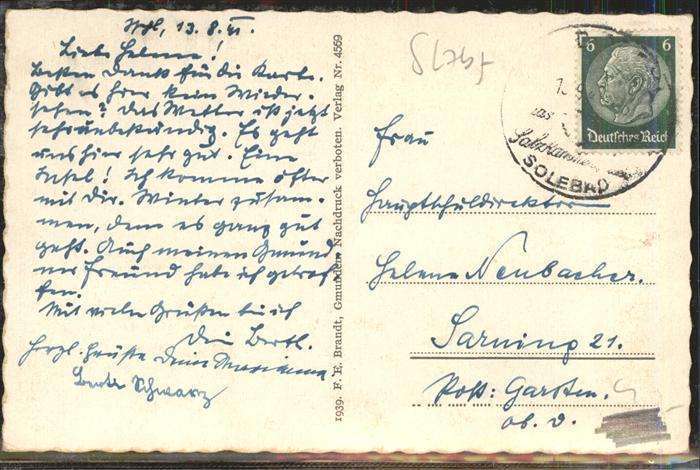 Ischl, 13.8.41.
Liebe Helene!
Besten Dank für die Karte.
Gibt es hier kein Wieder-
sehen? Das Wetter ist jetzt
sehr unbeständig. Es geht
uns hier sehr gut. Eine
Insel! Ich komme öfter
mit Dir. Winter zusam-
men, dem es ganz gut
geht. Auch meinen Gmund-
ner Freund habe ich getrof-
fen.
Mit vielen Grüßen bin ich
Dein Bertl.
Herzl. Grüße Deine Marianne
Schwarz
1939. F. E. Brandt, Gmunden. Nachdruck verboten. Verlag Nr. 4569
6 6
Deutsches Reich
Salzkammer
SOLEBAD
Frau
Hauptschuldirektor
Helene Neubacher.
Sarning 21.
Post: Garsten.
ob. d.